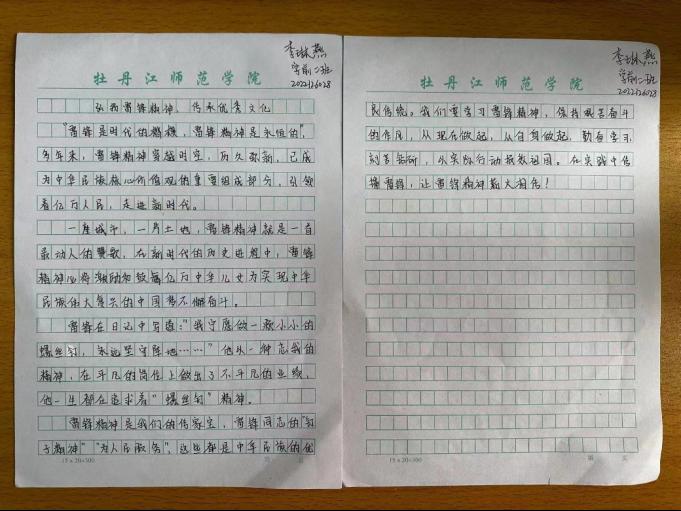 李琳燕
学前二班
2022126028
牡丹江师范学院
弘扬雷锋精神，传承优秀文化
“雷锋是时代的楷模，雷锋精神是永恒的”，
多年来，雷锋精神穿越时空，历久弥新，已成
为中华民族核心价值观的重要组成部分，引领
着亿万人民，走进新时代。
一座城市，一片土地，雷锋精神就是一首
最动人的赞歌，在新时代的历史进程中，雷锋
精神必将激励和鼓舞亿万中华儿女为实现中华
民族伟大复兴的中国梦不懈奋斗。
雷锋在日记中写道：“我宁愿做一颗小小的
螺丝钉，永远坚守阵地……”他从一种忘我的
精神，在平凡的岗位上做出了不平凡的业绩，
他一生都在追求着“螺丝钉”精神。
雷锋精神是我们的传家宝，雷锋同志的“钉
子精神”“为人民服务”，这些都是中华民族的优
15×20=300
第 页
李琳燕
学前二班
2022126028
牡丹江师范学院
良传统。我们要学习雷锋精神，保持艰苦奋斗
的作风，从现在做起，从自身做起，勤奋学习，
刻苦钻研，从实际行动报效祖国。在实践中传
播雷锋，让雷锋精神薪火相传！
15×20=300
第 页